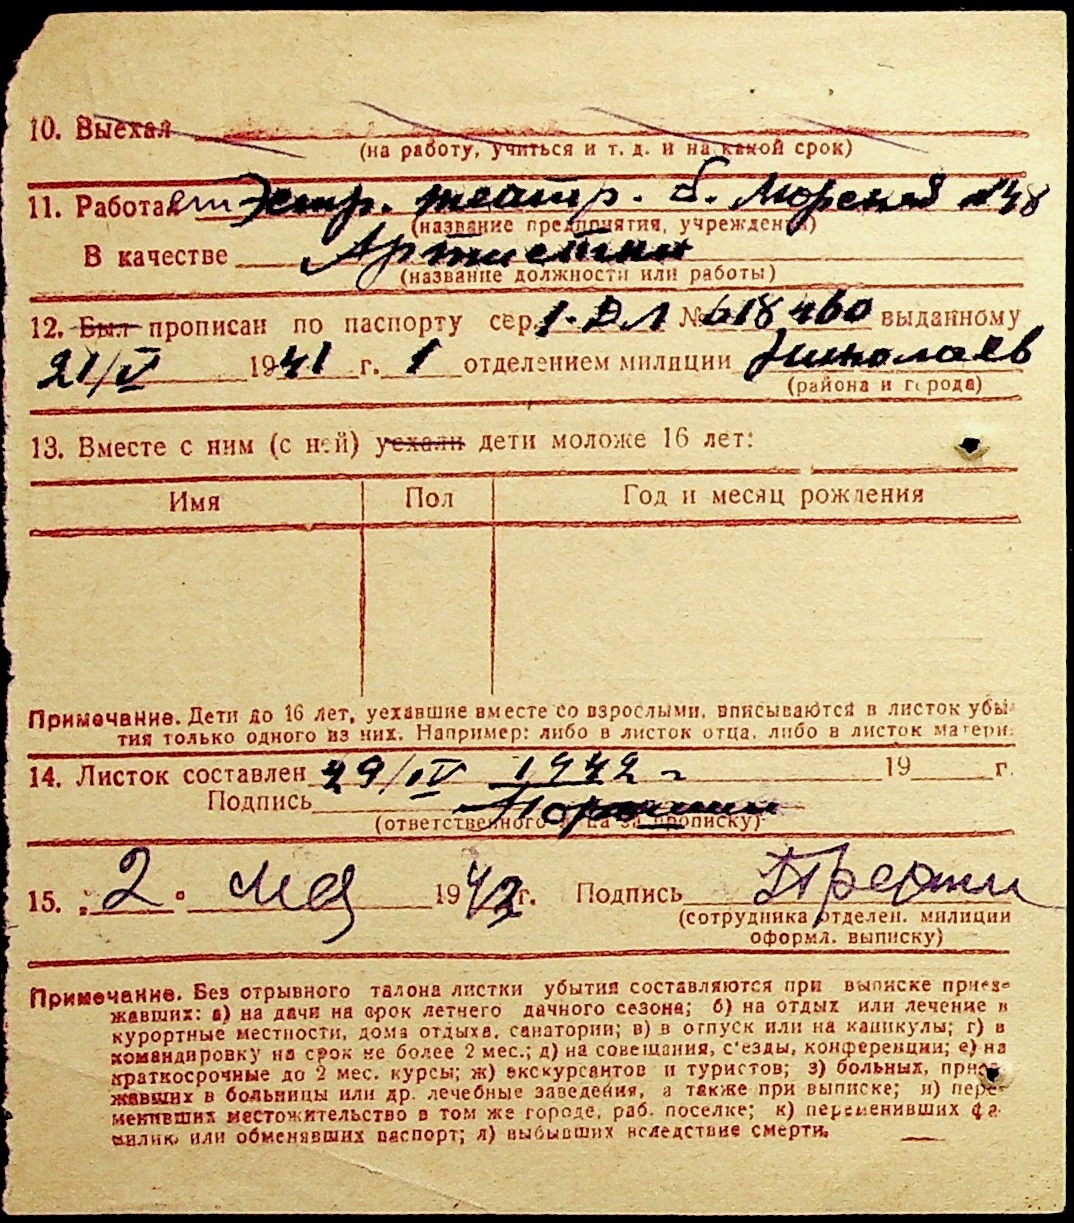 10. Выехал
(на работу, учиться и т. д. и на какой срок)
11. Работает Эстр. театр. б. Морская №48
(название предприятия, учреждения)
В качестве Артистки
(название должности или работы)
12. Был прописан по паспорту сер. 1-ДЛ № 618460 выданному
21/V 1941 г. 1 отделением милиции Николаев
(района и города)
13. Вместе с ним (с ней) уехали дети моложе 16 лет:
Имя Пол Год и месяц рождения
Примечание. Дети до 16 лет, уехавшие вместе со взрослыми, вписываются в листок убы-
тия только одного из них. Например: либо в листок отца, либо в листок матери.
14. Листок составлен 29/IV 1942 г 19 г.
Подпись
(ответственного лица за прописку)
15. „2“ мая 1942 г. Подпись
(сотрудника отделен. милиции
оформл. выписку)
Примечание. Без отрывного талона листки убытия составляются при выписке приез-
жавших: а) на дачи на срок летнего дачного сезона; б) на отдых или лечение в
курортные местности, дома отдыха, санатории; в) в отпуск или на каникулы; г) в
командировку на срок не более 2 мес.; д) на совещания, с'езды, конференции; е) на
краткосрочные до 2 мес. курсы; ж) экскурсантов и туристов; з) больных, прие-
жавших в больницы или др. лечебные заведения, а также при выписке; и) пере-
менивших местожительство в том же городе, раб. поселке; к) переменивших фа-
милию или обменявших паспорт; л) выбывших вследствие смерти.